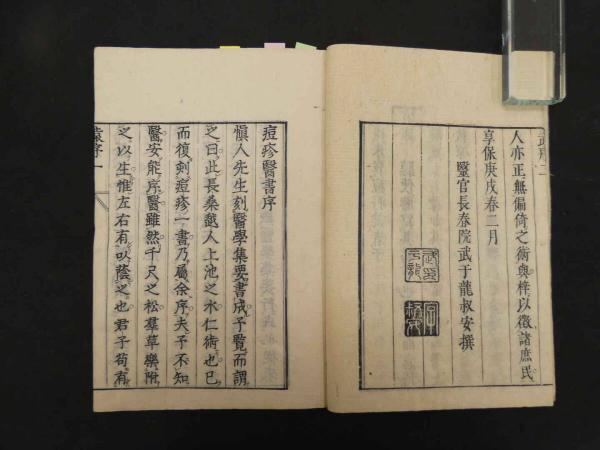 武序二
人亦正無偏倚之術與梓以徵諸庶民
享保庚戌春二月
醫官長春院武于龍叔安撰
痘疹醫書序
愼人先生刻醫學集要書成予覽而謂
之曰此長桑越人上池之水仁術也已
而復刻痘疹一書乃屬余序夫予不知
醫安能序醫雖然千尺之松羣草樂附
之以生惟左右有以蔭之也君子苟有
序一